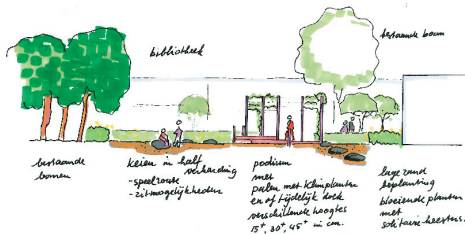 bibliotheek
bestaande boom
bestaande
bomen
keien in half
verharding
-speelroute
-zitmogelijkheden
podium
met
palen met klimplanten
en of tijdelijk doek
verschillende hoogtes
15⁺, 30⁺, 45⁺ in cm.
lage rand
beplanting
bloeiende planten
met
solitaire heesters.